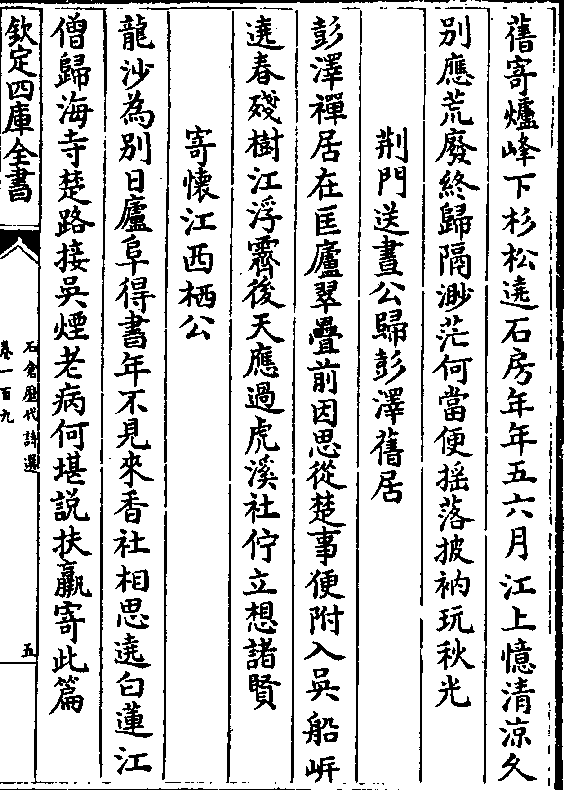 舊寄爐峰下杉松遶石房年年五六月江上憶清涼久
別應荒廢終歸隔渺茫何當便揺落披衲玩秋光
荆門送晝公歸彭澤舊居
彭澤禪居在匡廬翠疊前因思從楚事便附入吳船㟁
遶春殘樹江浮霽後天應過虎溪社佇立想諸賢
寄懷江西栖公
龍沙為别日廬阜得書年不見來香社相思遶白蓮江
僧歸海寺楚路接吳煙老病何堪説扶羸寄此篇
欽定四庫全書
石倉歷代詩選
卷一百九
五